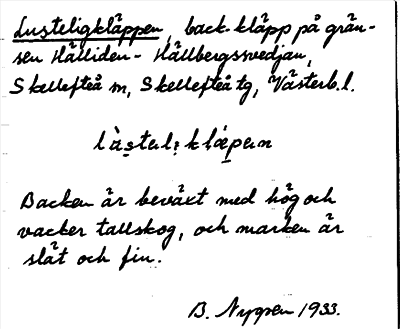 Lusteligkläppen, backkläpp på grän-
sen Hälliden - Hällbergssvedjan,
Skellefteå m, Skellefteå tg, Västerb.l.
Backen är beväxt med hög och
vacker tallskog, och marken är
slät och fin.
B. Nygren 1933.